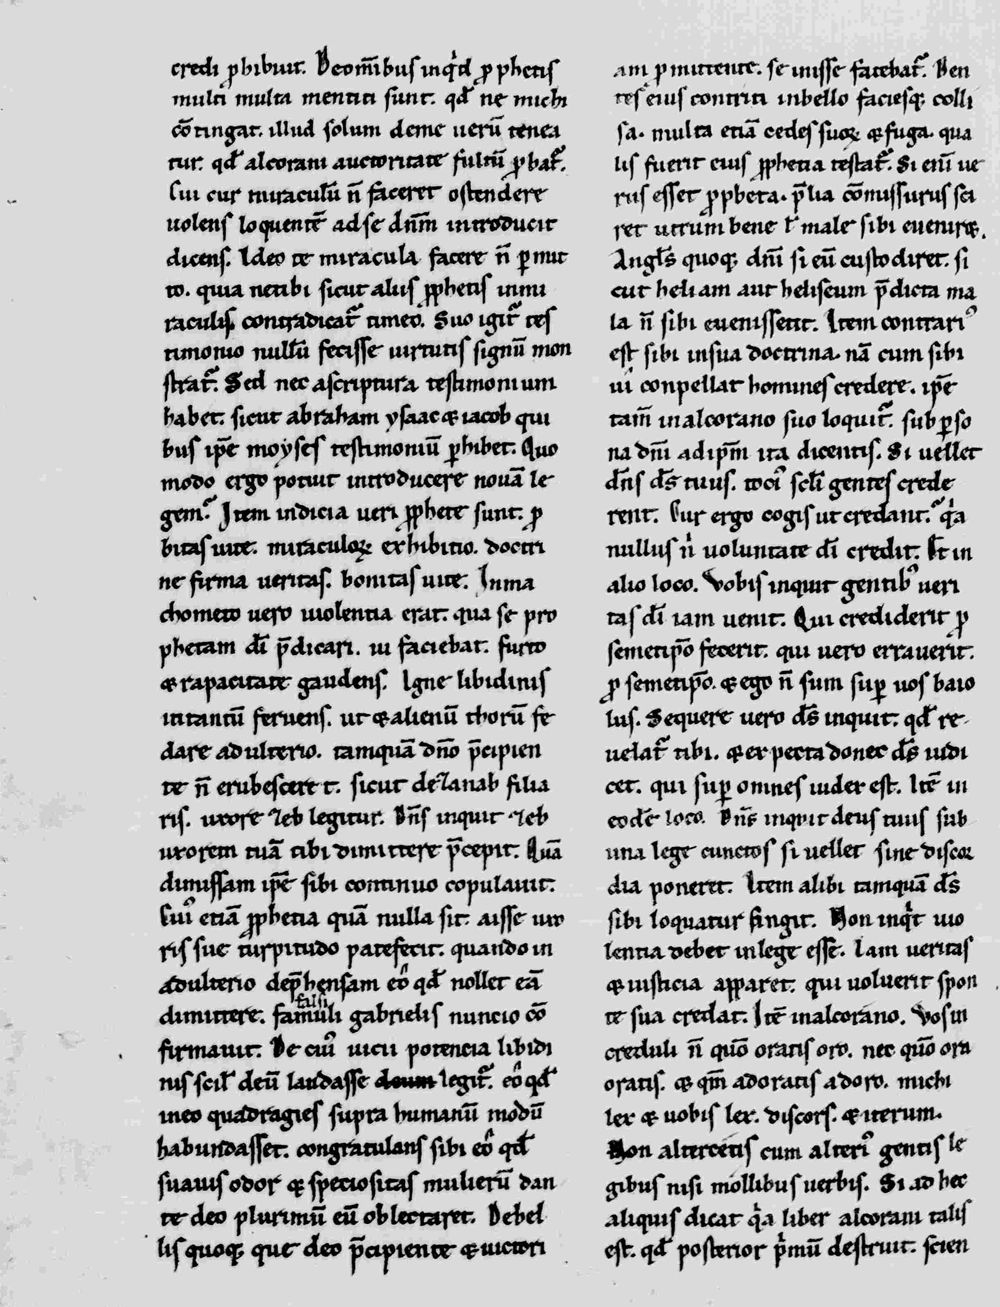 credi ꝓhibuit. Deom̄ibus inq'd ꝓphetis
multi multa mentiti sunt. qđ ne michi
cōtingat. illud solum deme uerū tenea
tur. qđ alcorani auctoritate fultū ꝓbat̃.
Cui cur miraculū n̄ faceret ostendere
uolens loquentē adse dn̄m introducit
dicens. Ideo te miracula facere n̄ ꝑmit
to. quia netibi sicut aliis ꝓphetis inmi
raculis contradicat̃ timeo. Suo igit̃ tes
timonio nullū fecisse uirtutis signū mon
strat̃. Sed nec ascriptura testimonium
habet. sicut abraham ysaac & iacob qui
bus ip̄e moyses testimoniū ꝑhibet. Quo
modo ergo potuit introducere nouā le
gem. Item indicia ueri ꝓphete sunt. ꝓ
bitas uite. miraculoꝝ exhibitio. doctri
ne firma ueritas. bonitas uite. Inma
chometo uero uiolentia erat. qua se pro
phetam dī p̄dicari. ui faciebat. furto
& rapacitate gaudens. Igne libidinis
intantū feruens. ut & alienū thorū fe
dare adulterio. tamquā dn̄o p̄cipien
te n̄ erubesceret. sicut de zanab filia
ris. uxore zeb legitur. Dn̄s inquit zeb
uxorem tuā tibi dimittere p̄cepit. Quā
dimissam ip̄e sibi continuo copulauit.
Cui' etiā ꝓphetia quā nulla sit. aisse uxo
ris sue turpitudo patefecit. quando in
adulterio dep̄hensam eo' qđ nollet eā
falsi
dimittere. famuli gabrielis nuncio cō
firmauit. De cui' uicii potencia libidi
nis scil' deū laudasse deum legit̃. eo' qđ
ineo quadragies supra humanū modū
habundasset. congratulans sibi eo' qđ
suauis odor & speciositas mulierū dan
te deo plurimū eū oblectaret. Debel
lis quoq; que deo p̄cipiente & uictori
am ꝑmittente. se inisse fatebat̃. Den
tes eius contriti inbello faciesq; colli
sa. multa etiā cedes suoꝝ & fuga. qua
lis fuerit eius ꝓphetia testat̃. Si eni ue
rus esset ꝓpheta. p̄lia cōmissurus sci
ret utrum bene l' male sibi eueniret.
Angl's quoq; dn̄i si eū custodiret. si
cut heliam aut heliseum p̄dicta ma
la n̄ sibi euenissent. Item contrari'
est sibi insua doctrina. nā cum sibi
ui conpellat homines credere. ip̄e
tam̄ inalcorano suo loquit̃. sub ꝑso
na dn̄i adip̄m ita dicentis. Si uellet
dn̄s ds̄ tuus. toci' scl̄i gentes crede
rent. Cur ergo cogis ut credant. q'a
nullus n' uoluntate dī credit. Et in
alio loco. Vobis inquit gentib' ueri
tas dī iam uenit. Qui crediderit ꝓ
semetip̄o fecerit. qui uero errauerit.
ꝓ semetip̄o. & ego n̄ sum suꝑ uos baio
lus. Sequere uero ds̄ inquit. qđ re
uelat̃ tibi. & expecta donec ds̄ iudi
cet. qui suꝑ omnes iudex est. Itē in
eodē loco. Dn̄s inquit deus tuus sub
una lege cunctos si uellet sine discor
dia poneret. Item alibi tamquā ds̄
sibi loquatur fingit. Non inq't uio
lentia debet inlege esse. Iam ueritas
& iusticia apparet. qui uoluerit spon
te sua credat. Itē inalcorano. Vos in
creduli n̄ quō oratis oro. nec quō oro
oratis. & qm̄ adoratis adoro. michi
lex & uobis lex. discors. & iterum.
Non altercetis cum alteri' gentis le
gibus nisi mollibus uerbis. Si ad hec
aliquis dicat q'a liber alcorani talis
est. qđ posterior p'mū destruit. scien